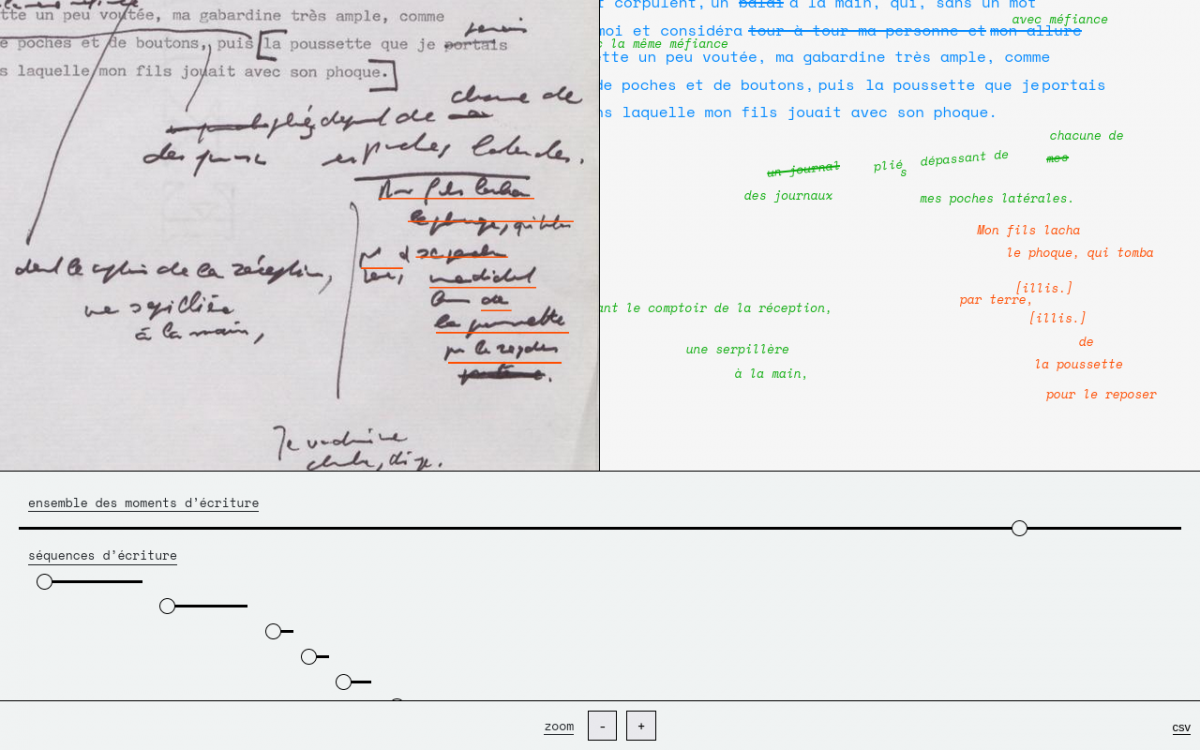 tte un peu voutée, ma gabardine très ample, comme
e poches et de boutons,, puis la poussette que je portais
s laquelle mon fils jouait avec son phoque.
pliés dépassant de chacune de
des journaux mes poches latérales.
Mon fils lacha
le phoque, qui tomba
par terre,
de
la poussette
pour le reposer
devant le comptoir de la réception,
une serpillière
à la main,
t corpulent, un balai à la main, qui, sans un mot
avec méfiance
moi et considéra tour à tour ma personne et mon allure
c la même méfiance
tte un peu voutée, ma gabardine très ample, comme
de poches et de boutons, puis la poussette que je portais
ns laquelle mon fils jouait avec son phoque.
chacune de
un journal pliés dépassant de mes
des journaux mes poches latérales.
Mon fils lacha
le phoque, qui tomba
[illis.]
par terre,
[illis.]
de
la poussette
pour le reposer
ant le comptoir de la réception,
une serpillère
à la main,
ensemble des moments d'écriture
séquences d'écriture
zoom - +
csv